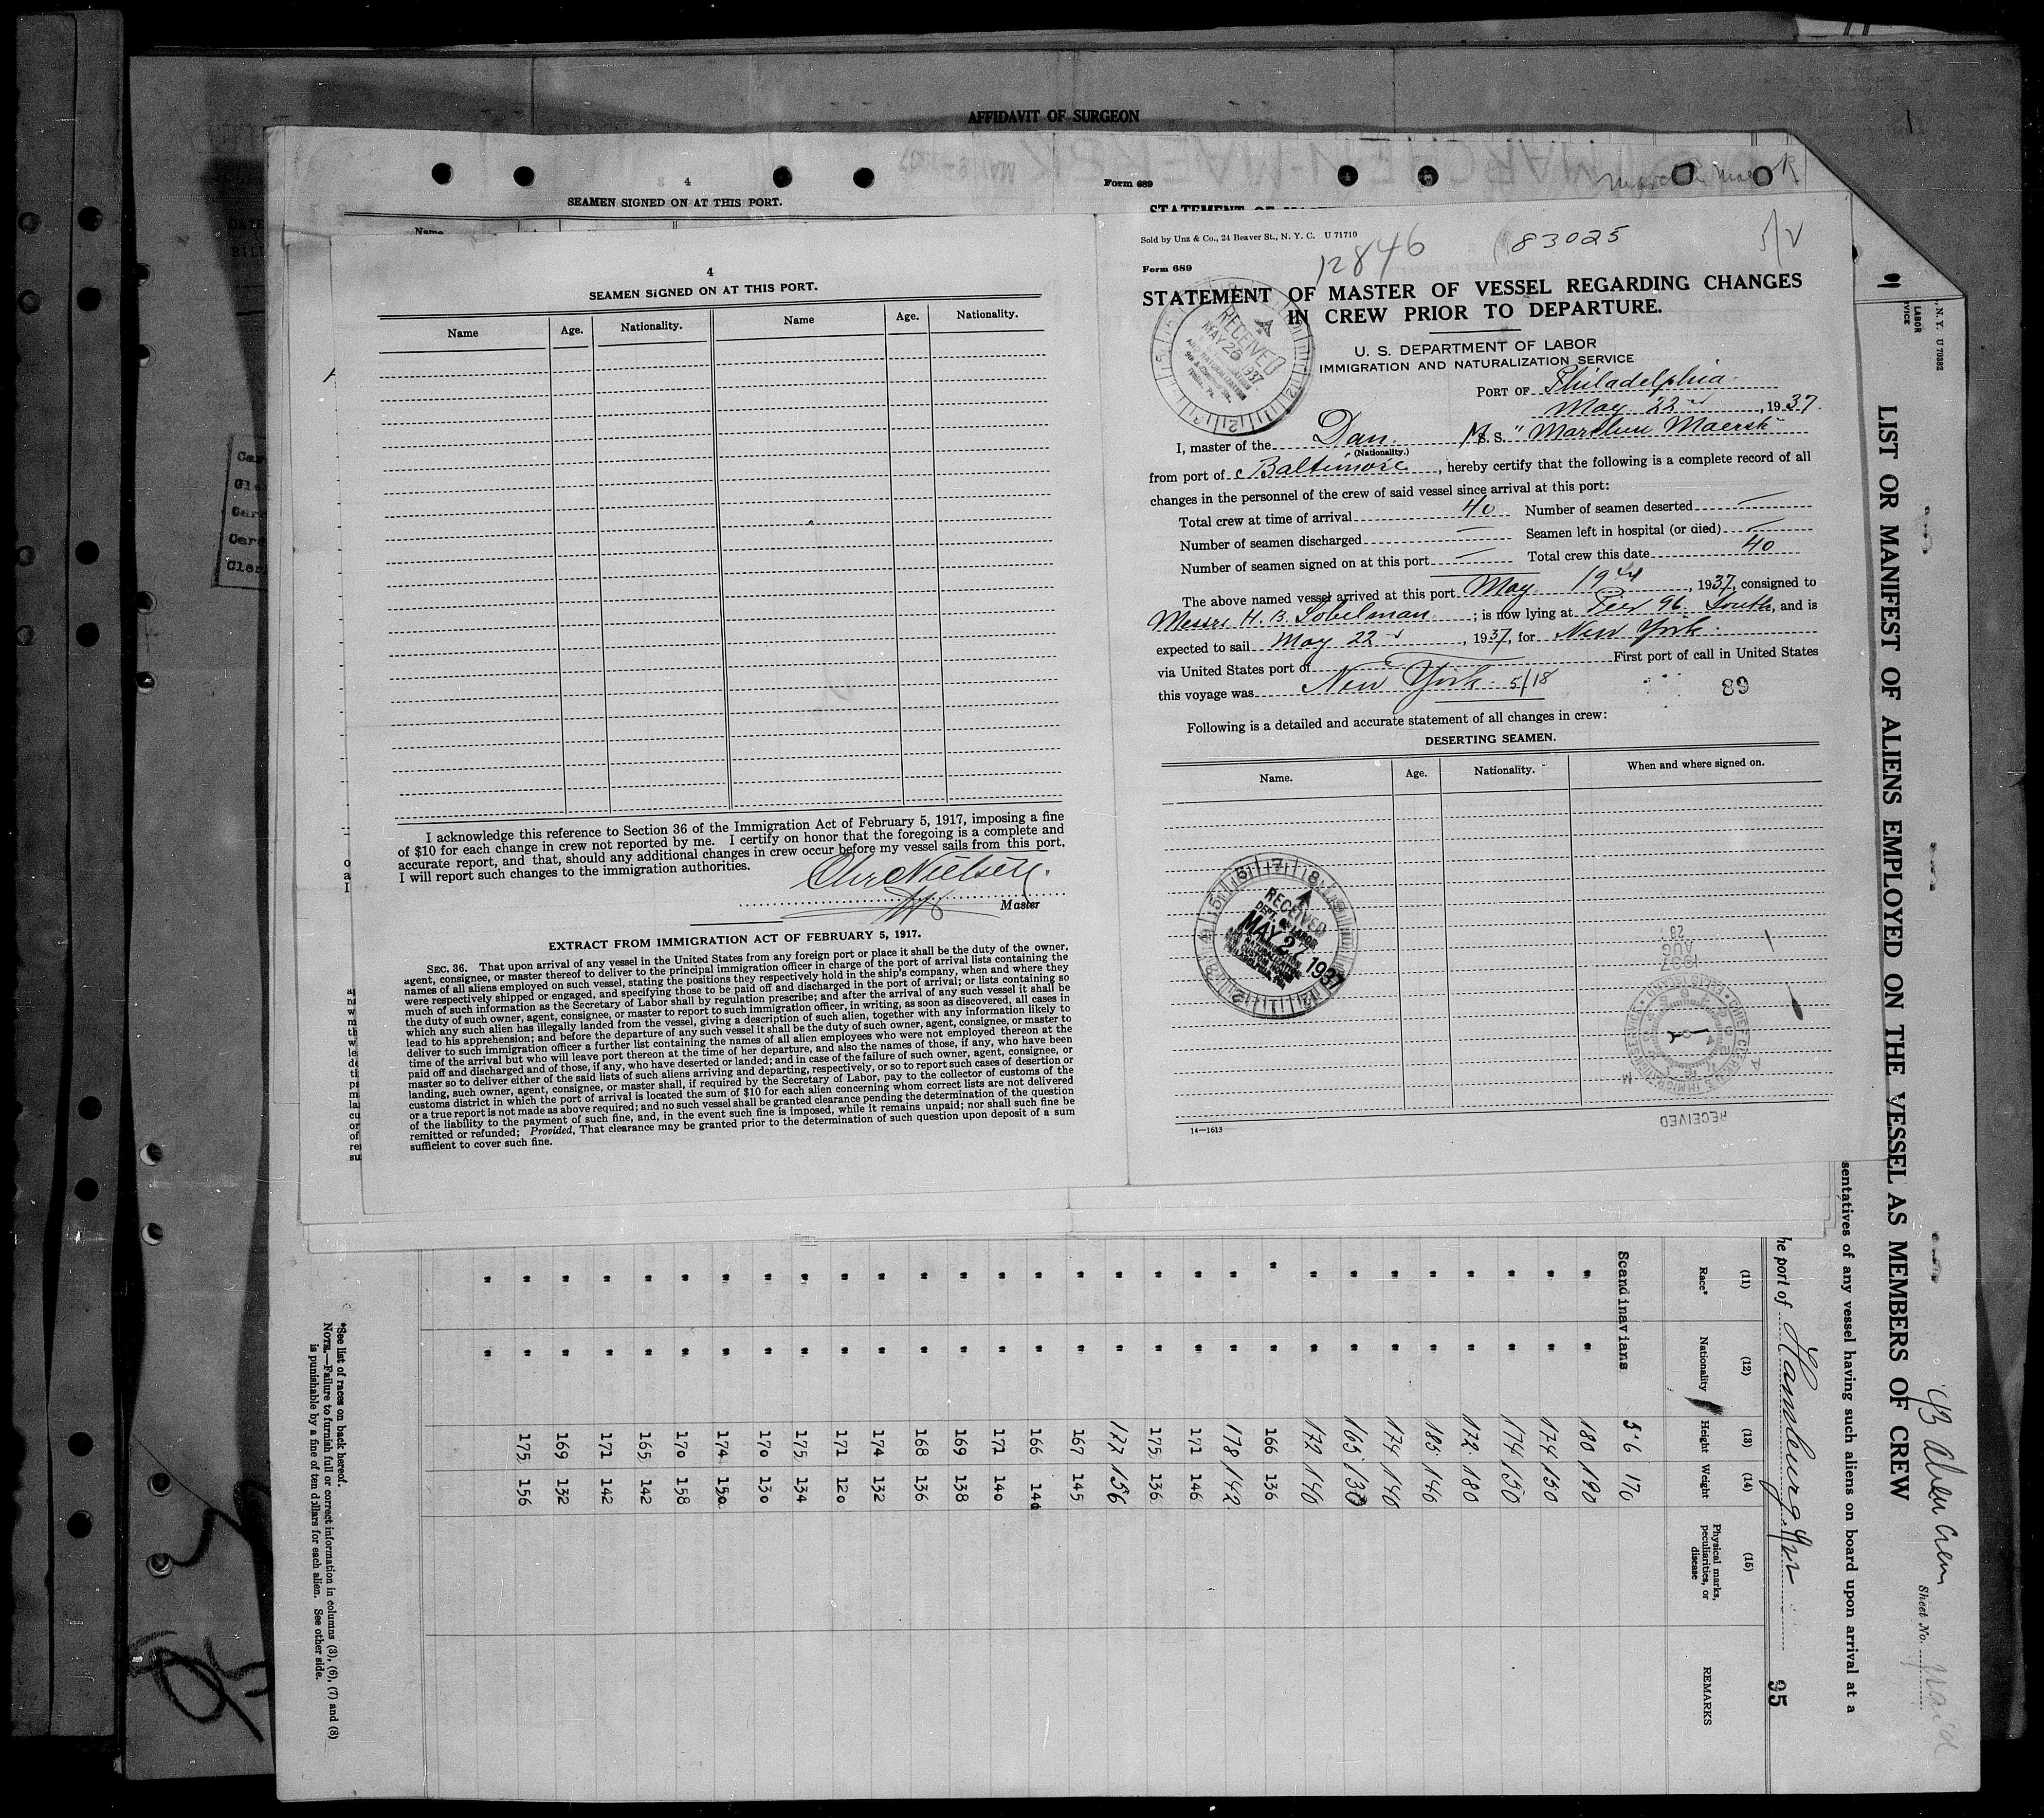 AFFIDAVIT OF SURGEON
4
SEAMEN SIGNED ON AT THIS PORT.
Name
Form 689
4
SEAMEN SIGNED ON AT THIS PORT.
Name Age. Nationality. Name Age. Nationality.
I acknowledge this reference to Section 36 of the Immigration Act of February 5, 1917, imposing a fine
of $10 for each change in crew not reported by me. I certify on honor that the foregoing is a complete and
accurate report, and that, should any additional changes in crew occur before my vessel sails from this port,
I will report such changes to the immigration authorities.
Chr Nielsen.
Master
EXTRACT FROM IMMIGRATION ACT OF FEBRUARY 5, 1917.
SEC. 36. That upon arrival of any vessel in the United States from any foreign port or place it shall be the duty of the owner,
agent, consignee, or master thereof to deliver to the principal immigration officer in charge of the port of arrival lists containing the
names of all aliens employed on such vessel, stating the positions they respectively hold in the ship's company, when and where they
were respectively shipped or engaged, and specifying those to be paid off and discharged in the port of arrival; or lists containing so
much of such information as the Secretary of Labor shall by regulation prescribe; and after the arrival of any such vessel it shall be
the duty of such owner, agent, consignee, or master to report to such immigration officer, in writing, as soon as discovered, all cases in
which any such alien has illegally landed from the vessel, giving a description of such alien, together with any information likely to
lead to his apprehension; and before the departure of any such vessel it shall be the duty of such owner, agent, consignee, or master to
deliver to such immigration officer a further list containing the names of all alien employees who were not employed thereon at the
time of the arrival but who will leave port thereon at the time of her departure, and also the names of those, if any, who have been
paid off and discharged and of those, if any, who have deserted or landed; and in case of the failure of such owner, agent, consignee, or
master so to deliver either of the said lists of such aliens arriving and departing, respectively, or so to report such cases of desertion or
landing, such owner, agent, consignee, or master shall, if required by the Secretary of Labor, pay to the collector of customs of the
customs district in which the port of arrival is located the sum of $10 for each alien concerning whom correct lists are not delivered
or a true report is not made as above required; and no such vessel shall be granted clearance pending the determination of the question
of the liability to the payment of such fine, and, in the event such fine is imposed, while it remains unpaid; nor shall such fine be
remitted or refunded; Provided, That clearance may be granted prior to the determination of such question upon deposit of a sum
sufficient to cover such fine.
Sold by Unz & Co., 24 Beaver St., N. Y. C. U 71710
12846 83025
Form 689
STATEMENT OF MASTER OF VESSEL REGARDING CHANGES
IN CREW PRIOR TO DEPARTURE.
U. S. DEPARTMENT OF LABOR
IMMIGRATION AND NATURALIZATION SERVICE
RECEIVED
MAY 26 1937
PORT OF Philadelphia.
May 22nd, 1937.
I, master of the Dan. M. S. "Marchen Maersk"
(Nationality.)
from port of Baltimore, hereby certify that the following is a complete record of all
changes in the personnel of the crew of said vessel since arrival at this port:
Total crew at time of arrival 40 Number of seamen deserted —
Number of seamen discharged — Seamen left in hospital (or died) —
Number of seamen signed on at this port — Total crew this date 40
The above named vessel arrived at this port May 19th, 1937, consigned to
Messrs H. B. Sobelman; is now lying at Pier 96 South, and is
expected to sail May 22nd, 1937, for New York.
via United States port of — First port of call in United States
this voyage was New York 5/18
89
Following is a detailed and accurate statement of all changes in crew:
DESERTING SEAMEN.
Name. Age. Nationality. When and where signed on.
RECEIVED
DEPT. OF LABOR
MAY 27 1937
PHILADELPHIA, PA.
1937
AUG
28
RECEIVED
14—1613
LIST OR MANIFEST OF ALIENS EMPLOYED ON THE VESSEL AS MEMBERS OF CREW
Sheet No.
, N. Y. U 70382
LABOR
VICE
sentatives of any vessel having such aliens on board upon arrival at a
he port of Hamburg
95
(11) (12) (13) (14) (15)
Race* Nationality Height Weight Physical marks, peculiarities, or disease REMARKS
Scandinavians 5·6 170
" " 180 190
" " 174 150
" " 174 150
" " 172 180
" " 185 146
" " 174 140
" " 165 130
" " 172 140
" " 166 136
" " 178 142
" " 171 146
" " 175 136
" " 177 156
" " 167 145
" " 166 146
" " 171 140
" " 169 138
" " 168 136
" " 174 132
" " 171 120
" " 175 134
" " 170 130
" " 174 150
" " 170 158
" " 165 142
" " 171 142
" " 169 132
" " 175 156
" "
*See list of races on back hereof.
NOTE.—Failure to furnish full or correct information in columns (3), (6), (7) and (8)
is punishable by a fine of ten dollars for each alien. See other side.